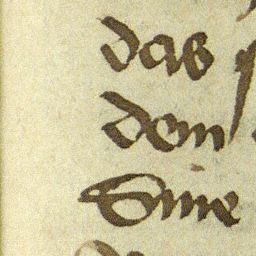 das
dem
Sine